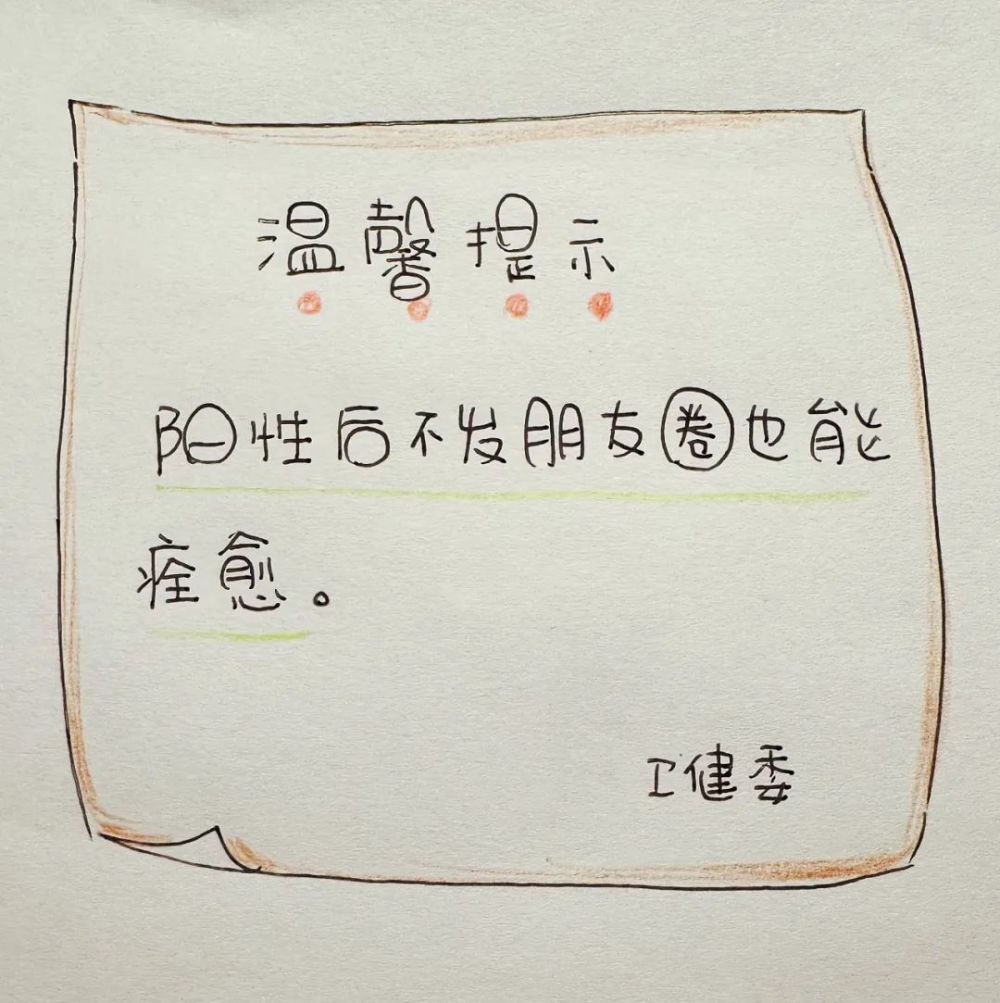 温馨提示
阳性后不发朋友圈也能
痊愈。
卫健委